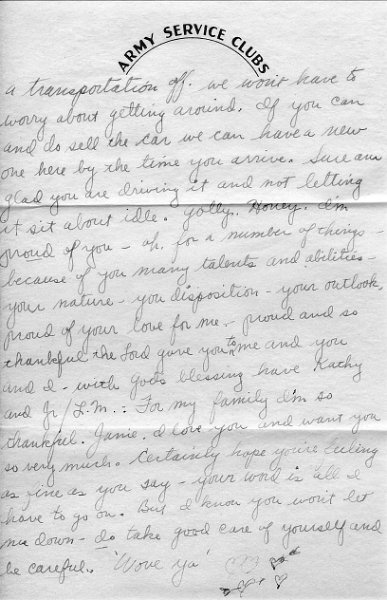 ARMY SERVICE CLUBS
a transportation off. we won't have to
worry about getting around. If you can
and do sell the car we can have a new
one here by the time you arrive. Sure am
glad you are driving it and not letting
it sit about idle. golly. Honey. I'm
proud of you - oh, for a number of things -
because of you many talents and abilities -
your nature - you disposition - your outlook,
proud of your love for me - proud and so
thankful the Lord gave you to me and you
and I - with God's blessing have Kathy
and Jr/L.M.: For my family I'm so
thankful. Janie. I love you and want you
so very much. Certainly hope you're feeling
as fine as you say - your word is all I
have to go on. But I know you won't let
me down - do take good care of yourself and
be careful. 'Wove Ya'